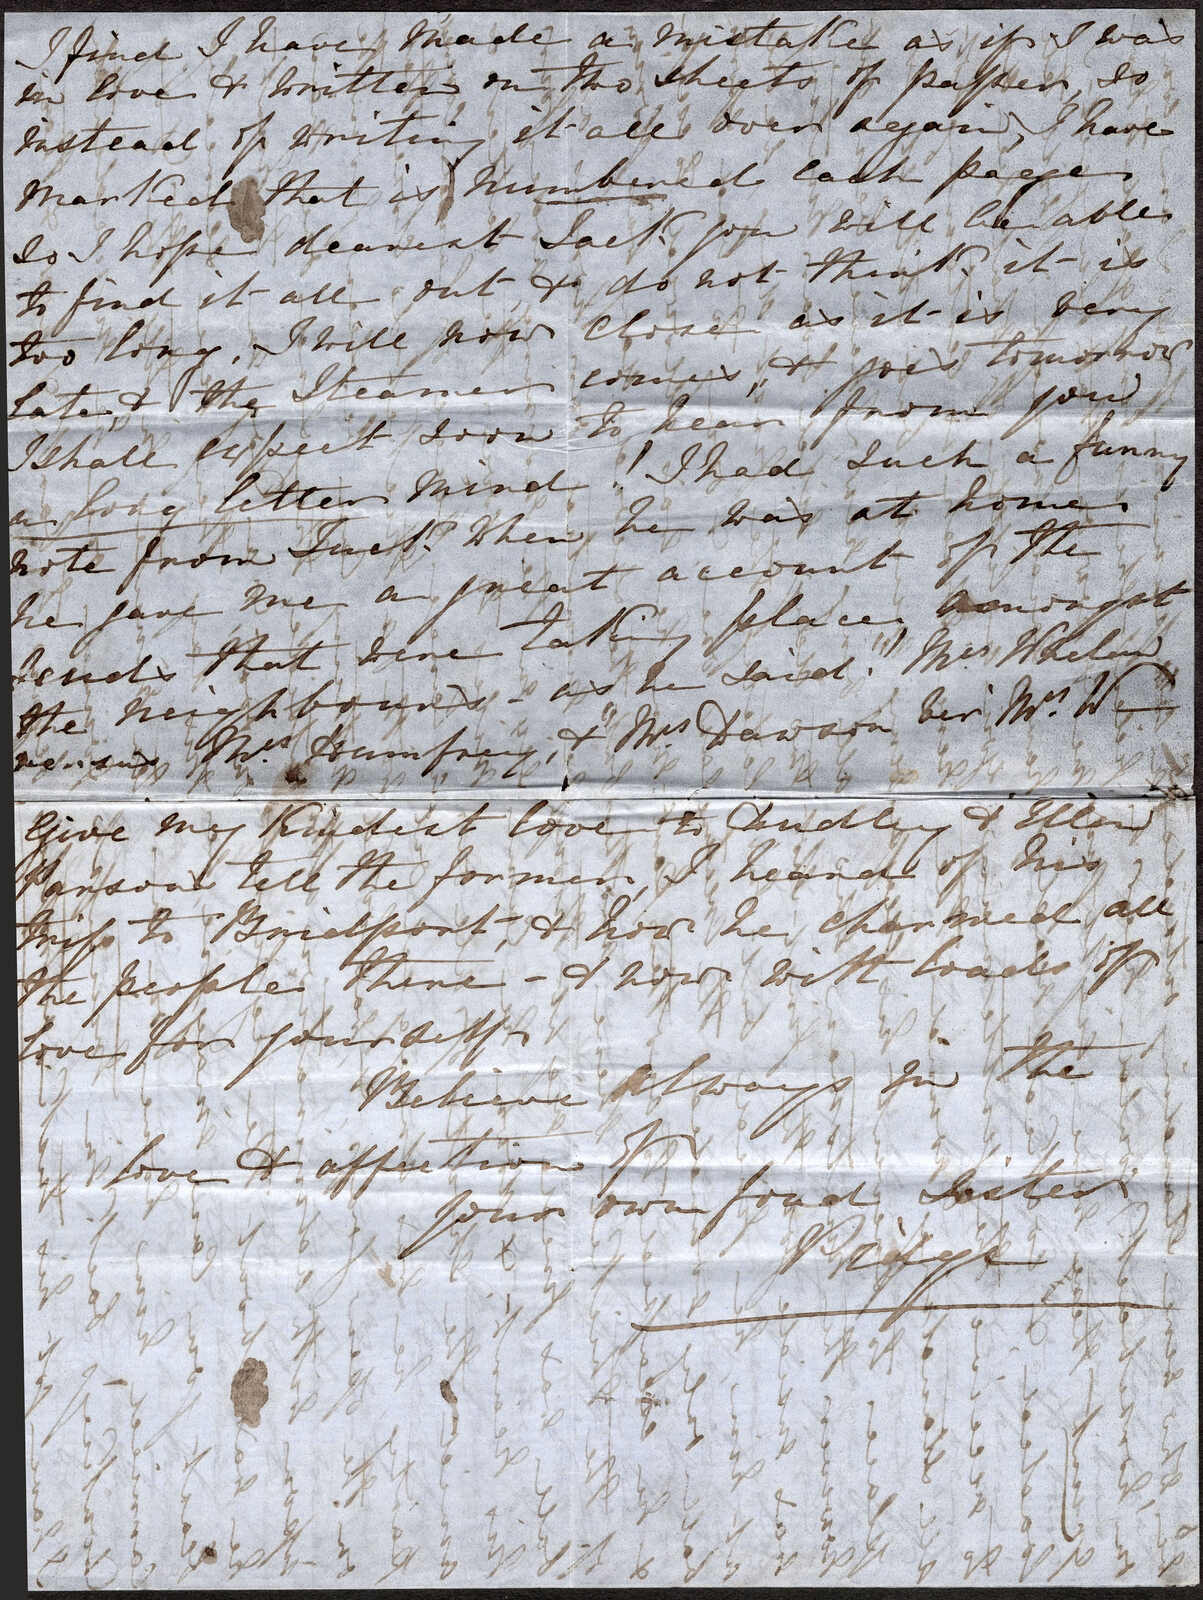 I find I have made a mistake as if I was
in love & written on two sheets of paper, so
instead of writing it all over again, I have
marked that is numbered each page
so I hope dearest Jack you will be able
to find it all out, & do not think it is
too long, I will now close as it is very
late, & the Steamer comes, & goes tomorrow
I shall expect soon to hear from you
a long letter mind! I had such a funny
note from Jack when he was at home
he gave me a great account of the
feuds that were taking place amongst
the neighbours - as he said "Mrs Whelan
versus Mrs Humfrey, & "Mrs Dawson ver Mrs W—
Give my kindest love to Dudley & Ellen
Parsons tell the former, I heard of his
trip to Bridport, & how he charmed all
the people there - & now with loads of
love for yourself
Believe always in the
love & affection of
your own fond Sister